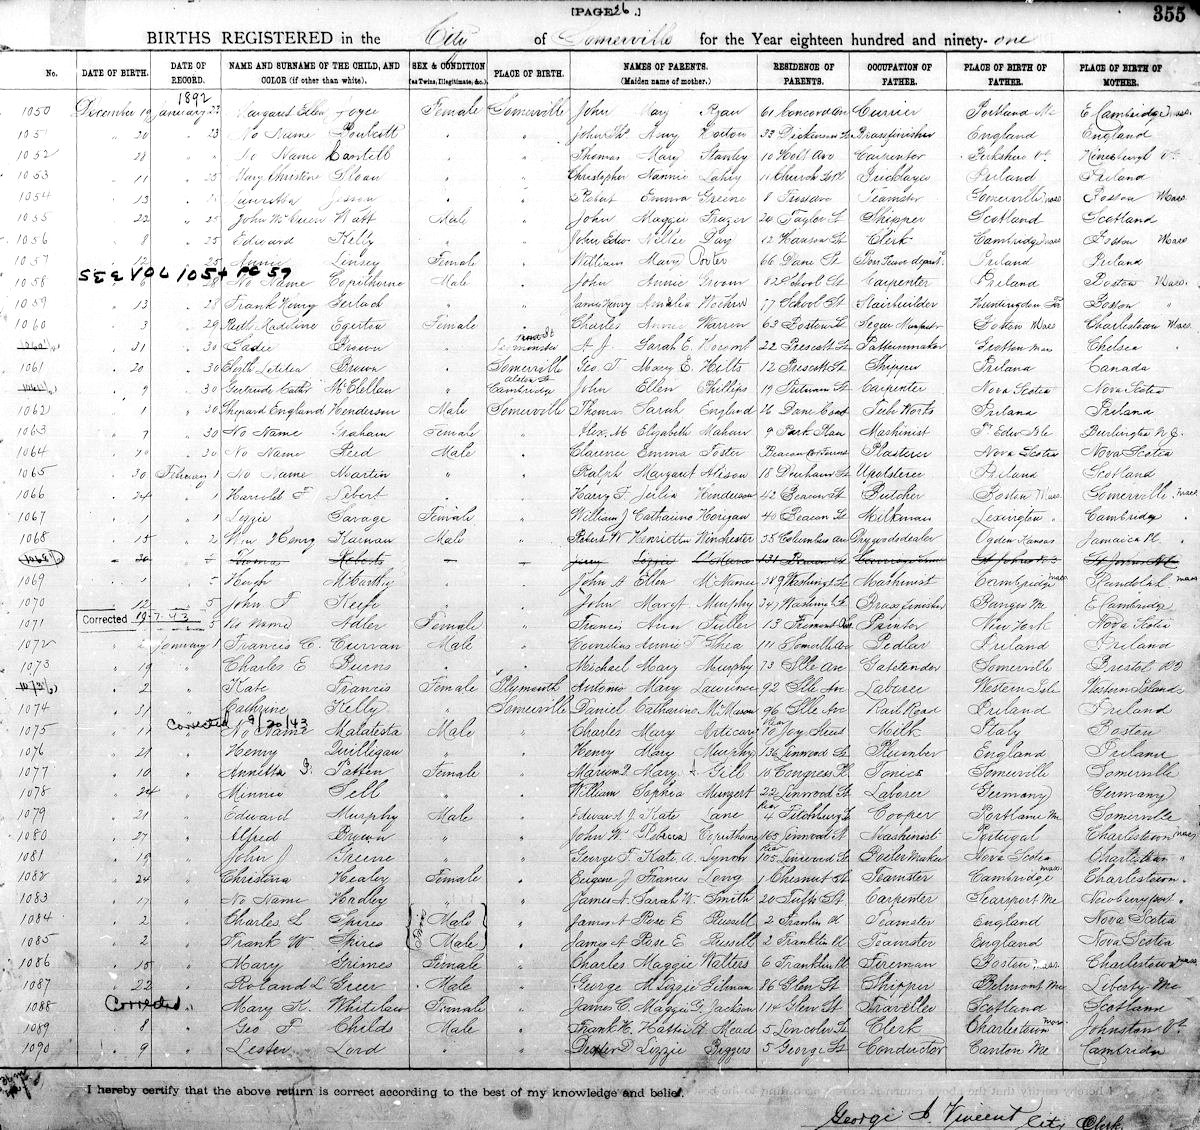 [PAGE 26.]
355
BIRTHS REGISTERED in the City of Somerville for the Year eighteen hundred and ninety-one
No. DATE OF BIRTH. DATE OF RECORD. NAME AND SURNAME OF THE CHILD, AND COLOR (if other than white). SEX & CONDITION (as Twins, Illegitimate, &c.) PLACE OF BIRTH. NAMES OF PARENTS. (Maiden name of mother.) RESIDENCE OF PARENTS. OCCUPATION OF FATHER. PLACE OF BIRTH OF FATHER. PLACE OF BIRTH OF MOTHER.
1892
1050 December 19 January 22 Margaret Ellen Joyce Female Somerville John Mary Ryan 61 Concord Av Currier Portland Me E. Cambridge Mass
1051 " 20 " 23 No Name " " Mary 33 Brassfinisher England England
1052 " 28 " " No Name Cantell " " Thomas Mary Stanley 10 Holt Ave Carpenter Berkshire Vt. Hinesburgh Vt
1053 " 11 " 25 Mary Christine Sloan " " Christopher Nannie Lahey 11 Church Bricklayer Ireland Ireland
1054 " 13 " Jesson " " Robert Emma Greene 8 Teamster Somerville Mass Boston Mass.
1055 " 22 " 25 John Watt Male " John Maggie Frazer 20 Taylor St Shipper Scotland Scotland
1056 " 8 " 25 Edward Kelly " " John Edw. Nellie Day 12 Hanson St Clerk Cambridge Mass Boston Mass.
1057 " 12 " 25 Annie Linsey Female " William Mary Porter 66 Dane St Ireland Ireland
SEE VOL 1054 PG 59
1058 " 6 " 28 No Name Copithorne Male " John Annie Groom 82 School St Carpenter Ireland Boston Mass.
1059 " 13 " 28 Frank Henry Gerlach " " James Henry Amelia 77 School St Stairbuilder Boston "
1060 " 3 " 29 Ruth Madeline Egerton Female " Charles Annie Warren 63 Boston St Boston Mass Charlestown Mass.
" 31 " 30 Sadie Brown " A. J. Sarah E. 22 Prescott St Patternmaker Groton Mass Chelsea
1061 " 20 " 30 Edith Letitia Brown " Somerville Geo. T. Mary E. Hilts 12 Prescott St Shipper Ireland Canada
" 9 " 30 Gertrude Cath. McClellan " Cambridge John Ellen Phillips 19 Putnam St Carpenter Nova Scotia Nova Scotia
1062 " 1 " 30 Shepard England Henderson Male Somerville Thomas Sarah England 16 Dane Court Tube Works Ireland Ireland
1063 " 7 " 30 No Name Graham Female " Alex. M. Elizabeth Mahan 9 Park Place Machinist Pr. Edw. Isle Burlington
1064 " " 30 No Name Reed Male " Clarence Emma Foster Plasterer Nova Scotia Nova Scotia
1065 " 30 February 1 No Name Martin " " Ralph Margaret 18 Durham St Upolsterer Ireland Scotland
1066 " 24 " 1 Harrold F. " " Harry F. Julia Henderson 42 Beacon St Butcher Boston Mass. Somerville Mass
1067 " 1 " 1 Lizzie Savage Female " William J Catharine Horigan 40 Beacon St Milkman Lexington " Cambridge "
1068 " 15 " 2 Wm Henry Kurnan Male " Robert W Henrietta Winchester 38 Columbus av Drygoodsdealer Ogden Kansas Jamaica Pl "
" 30 Thomas Roberts Lizzie 131 Beacon St
1069 " 1 " 5 Hugh McCarthy " " John A Ellen McNamee Washington St Machinist Cambridge Mass Randolph Mass
1070 " 12 " 5 John F. Keefe " " John Margt Murphy 247 Washingt St Brass finisher Bangor Me E Cambridge
Corrected 19-7-43
1071 " " 5 No Name Adler Female " Francis Ann Fuller 13 Fremont Ave Painter New York Nova Scotia
1072 " 2 January 1 Francis C. Curran Male " Cornelius Annie T Shea Somerville Ave Pedlar Ireland Ireland
1073 " 19 " Charles E Burns " " Michael Mary Murphy 73 Elle Av Gatetender Somerville Bristol
" 2 " Kate Francis Female Plymouth Antonio Mary Lawrence 92 Elle Av Laborer Western Isle Western Islands
1074 " 31 " Cathrine Kelly " Somerville Daniel Catharine McMason 96 Elle Av Rail Road Ireland Ireland
Corrected 9/20/43
1075 " 11 " No Name Malatesta Male " Charles Mary Rear 70 Joy Street Milk Italy Boston
1076 " 21 " Henry Quilligan " " Henry Mary Murphy 136 Linwood St Plumber England Ireland
1077 " 10 " Annetta G. Patten Female " Marion D. Mary L. Gill 10 Congress Pl Tonics Somerville Somerville
1078 " 24 " Minnie Sell " " William Sophia Munzert 22 Linwood St Laborer Germany Germany
1079 " 21 " Edward Murphy Male " Edward J. Kate Lane Rear 4 Fitchburg St Cooper Portland Me Somerville
1080 " 27 " Alfred Brown " " John W. Copithorne 165 Linwood St Machinist Portugal Charlestown Mass
1081 " 19 " John J Greene " " George F. Kate A. Lynch Rear 105 Linwood St Boiler Maker Nova Scotia Charlestown "
1082 " 24 " Christina Healey Female " Eugene J Frances Long 1 Chesnut St Teamster Cambridge Mass Charlestown "
1083 " 17 " No Name Hadley " " James A. Sarah W. Smith 20 Tufts St Carpenter Searsport Me Newburyport "
1084 " 2 " Charles L Spires Twins Male " James A Rose E Russell 2 Franklin Pl Teamster England Nova Scotia
1085 " 2 " Frank W Spires Male " James A Rose E Russell 2 Franklin Pl Teamster England Nova Scotia
1086 " 15 " Mary Grimes Female " Charles Maggie Walters 6 Franklin Pl. Fireman Boston Mass. Charlestown Mass.
1087 " 22 " Roland L Greer Male " George M. Lizzie Gilman 86 Glen St Shipper Belmont Me Liberty Me
1088 Corrected " Mary K. Whitelaw Female " James C. Maggie G. Jackson 114 Glen St Traveller Scotland Scotland
1089 " 8 " Geo F. Childs Male " Frank H. Hattie A Mead 5 Lincoln St Clerk Charlestown Mass Johnston Vt
1090 " 9 " Lester Lord " " Dexter D Lizzie Biggers 5 George St Conductor Canton Me Cambridge
I hereby certify that the above return is correct according to the best of my knowledge and belief.
George I. Vincent City Clerk.